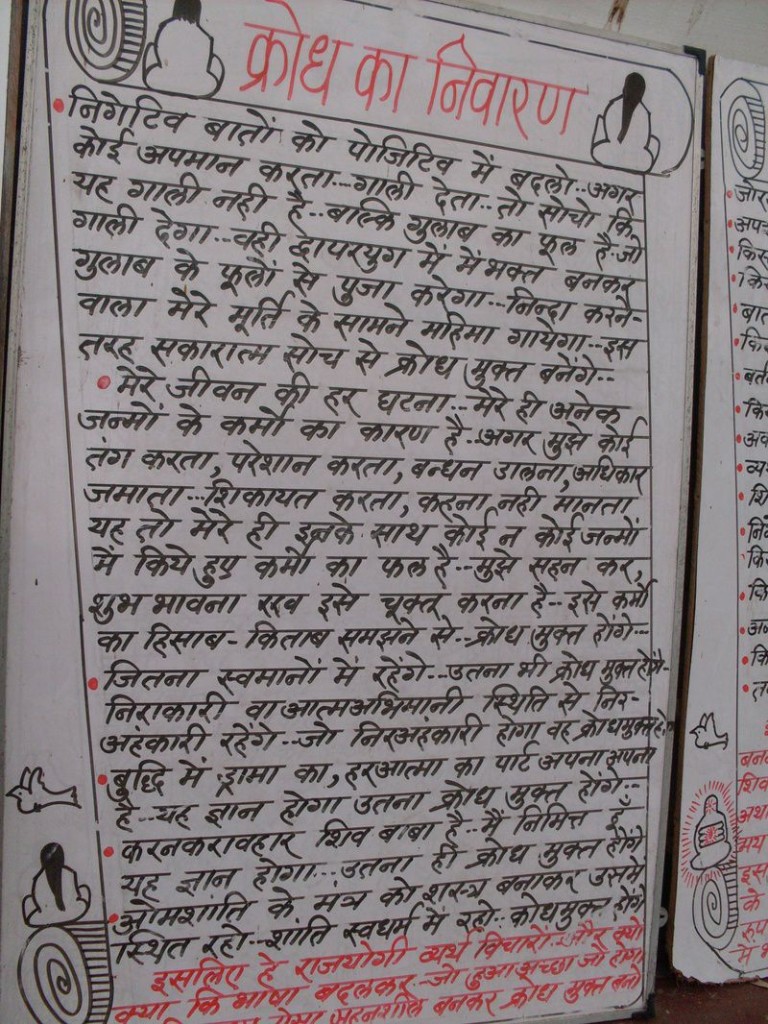 क्रोध का निवारण
• निगेटिव बातों को पोजिटिव में बदलो..अगर
कोई अपमान करता...गाली देता..तो सोचो कि
यह गाली नही है..बल्कि गुलाब का फूल है..जो
गाली देगा..वही द्वापरयुग में में भक्त बनकर
गुलाब के फूलों से पुजा करेगा...निन्दा करने-
वाला मेरे मूर्ति के सामने महिमा गायेगा...इस
तरह सकारात्म सोच से क्रोध मुक्त बनेंगे..
• मेरे जीवन की हर घटना..मेरे ही अनेक
जन्मों के कर्मो का कारण है..अगर मुझे कोई
तंग करता, परेशान करता, बन्धन डालना, अधिकार
जमाता...शिकायत करता, कहना नही मानता
यह तो मेरे ही इनके साथ कोई न कोई जन्मों
में किये हुए कर्मो का फल है..मुझे सहन कर,
शुभ भावना रख इसे चूक्तू करना है..इसे कर्मो
का हिसाब-किताब समझने से..क्रोध मुक्त होंगे...
• जितना स्वमानों में रहेंगे..उतना भी क्रोध मुक्त होंगे-
निराकारी वा आत्मअभिमानी स्थिति से निर-
अहंकारी रहेंगे..जो निरअहंकारी होगा वह क्रोधमुक्त
• बुद्धि में ड्रामा का, हरआत्मा का पार्ट अपना अपना
है..यह ज्ञान होगा उतना क्रोध मुक्त होंगे..
• करनकरावहार शिव बाबा है..मैं निमित्त हूँ
यह ज्ञान होगा...उतना ही क्रोध मुक्त होंगे
• ओमशांति के मंत्र को शस्त्र बनाकर उसमें
स्थित रहो..शांति स्वधर्म में रहो..क्रोधमुक्त होंगे
इसलिए हे राजयोगी व्यर्थ विचारों..और क्यो
क्या कि भाषा बदलकर..जो हुआ अच्छा जो होगा
सहनशील बनकर क्रोध मुक्त बनो